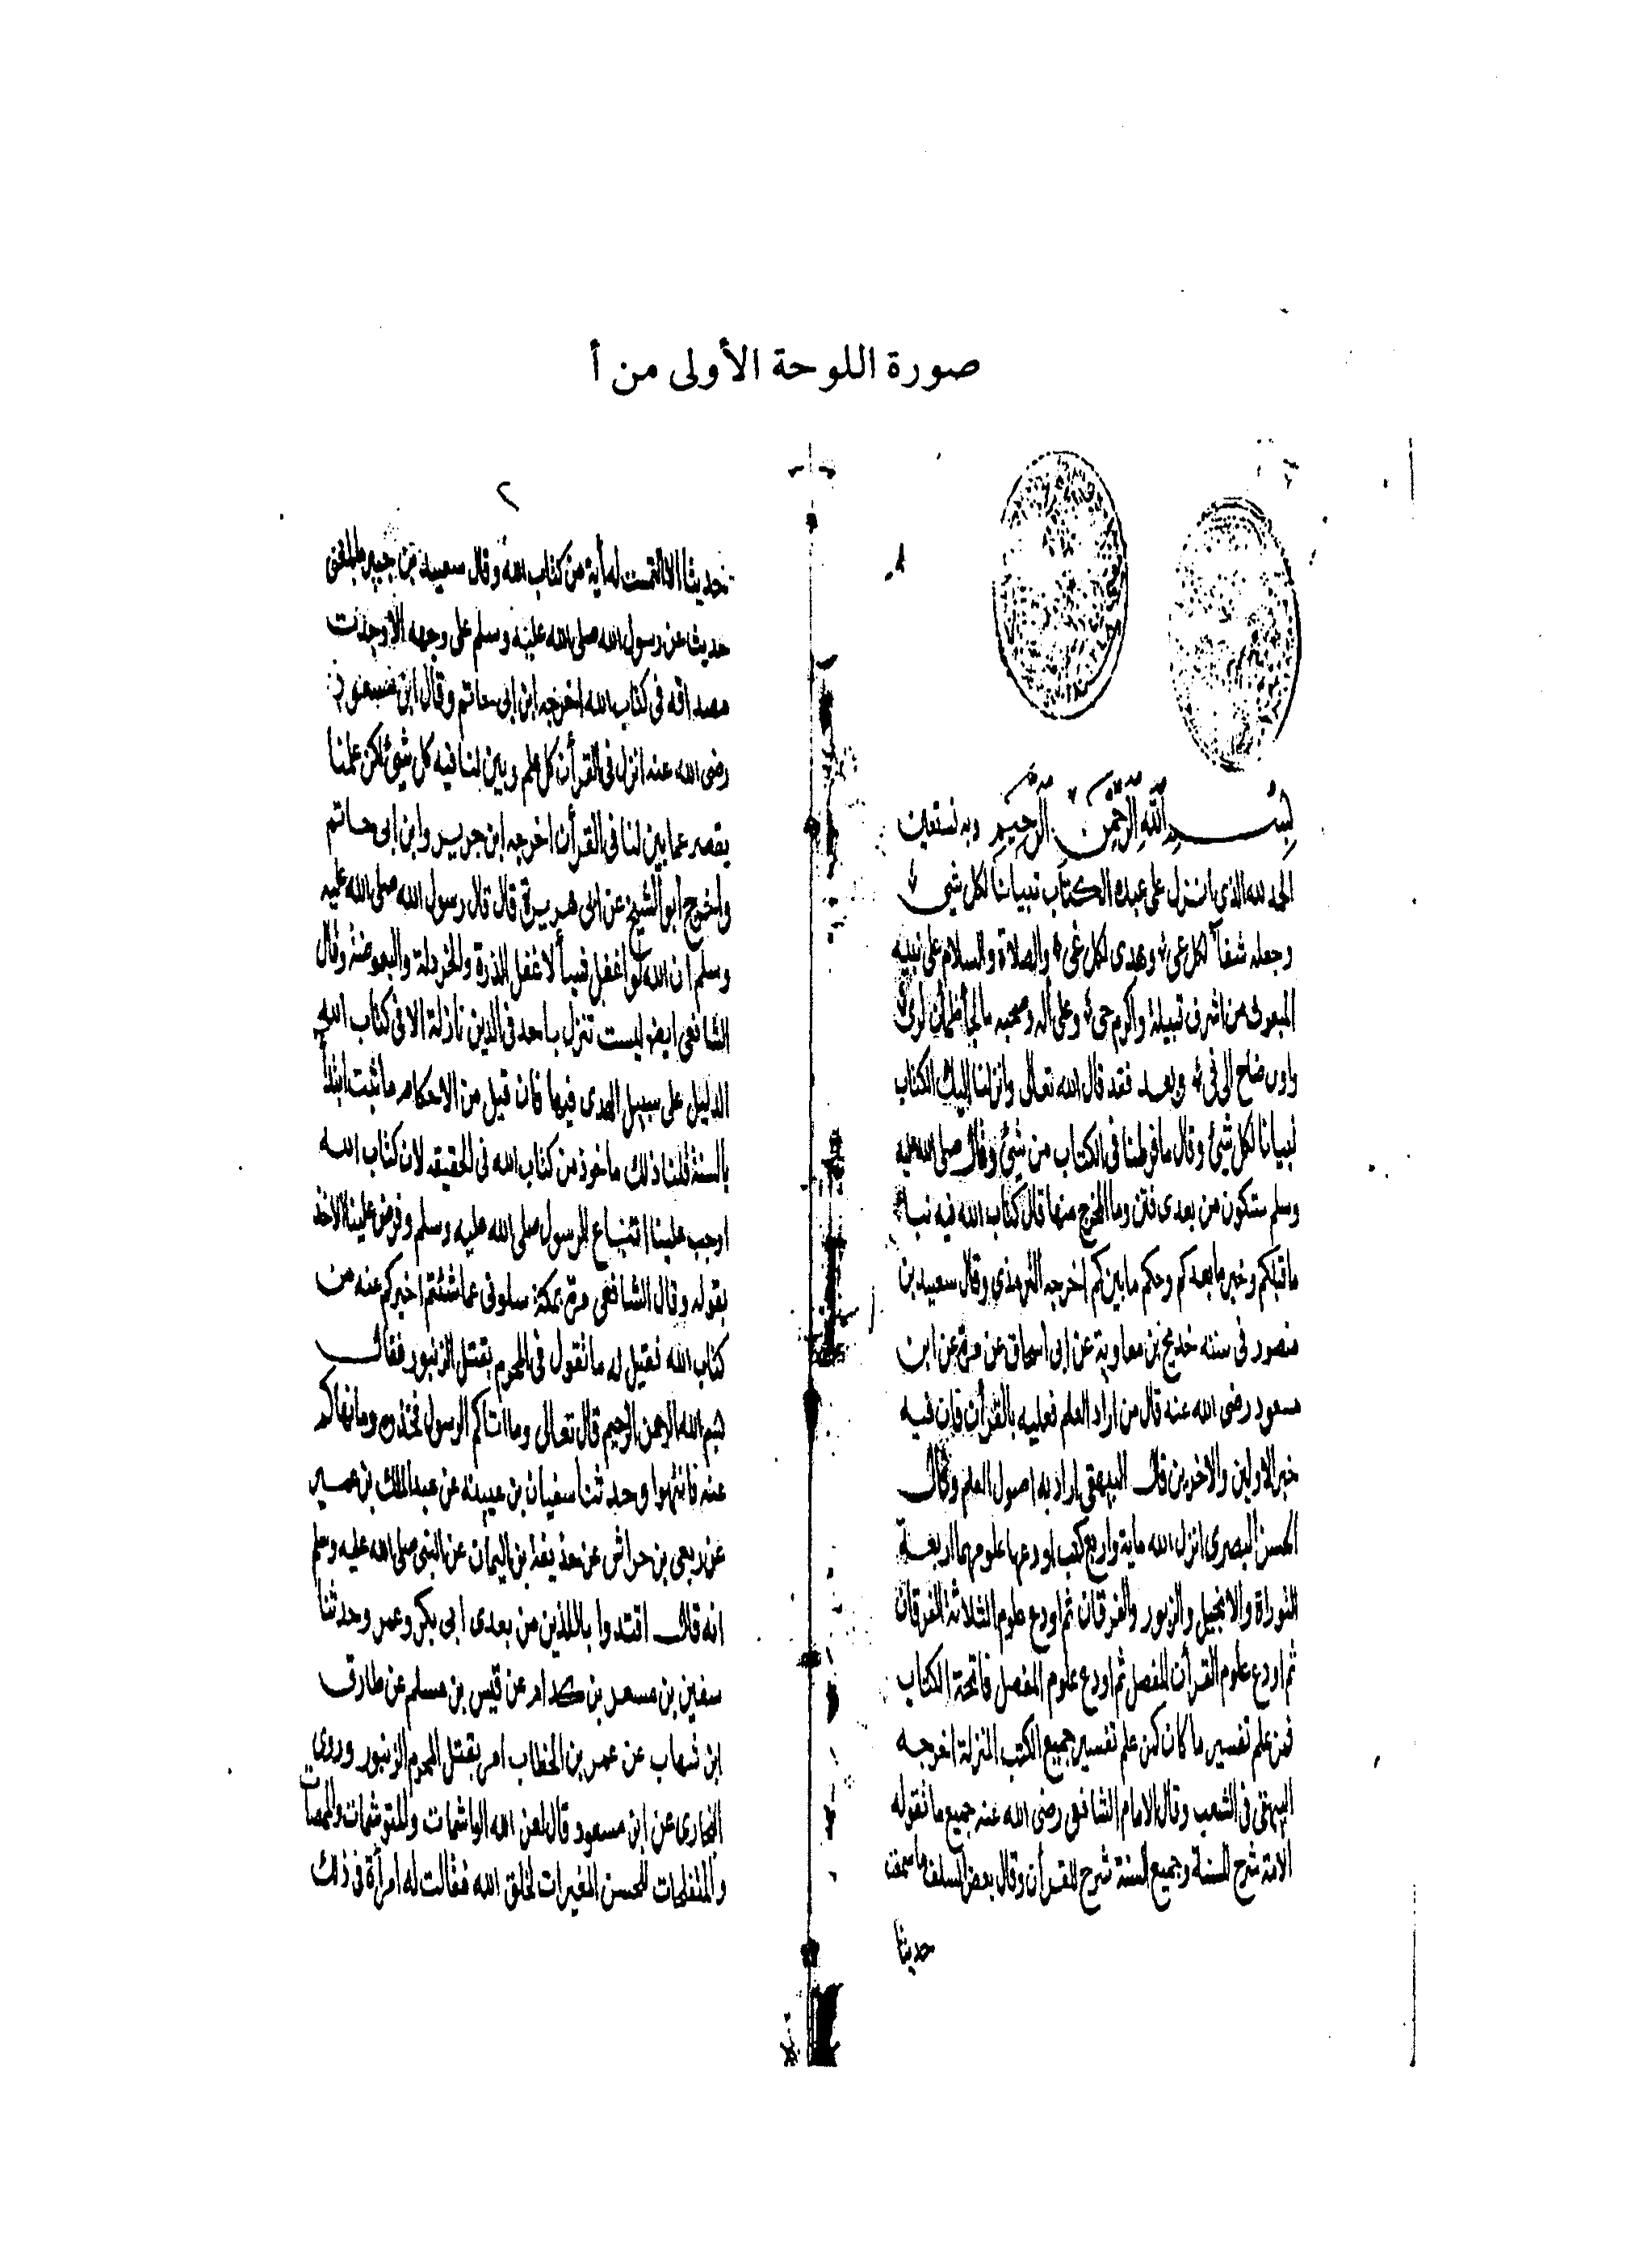 صورة اللوحة الأولى من أ
بسم الله الرحمن الرحيم وبه نستعين
الحمد لله الذى انزل على عبده الكتاب تبيانا لكل شيئ
وجعله شفآ لكل عى وهدى لكل غى والصلاة والسلام على نبيه
المبعوث من اشرف قبيلة واكرم حى وعلى اله وصحبه ما لجأ ظمأن لرى
واوى ضاح الى فى وبعد فقد قال الله تعالى وانزلنا اليك الكتاب
تبيانا لكل شيئ وقال ما فرطنا فى الكتاب من شيئ وقال صلى الله عليه
وسلم ستكون من بعدى فتن وما المخرج منها قال كتاب الله فيه نباء
ما قبلكم وخبر ما بعدكم وحكم ما بينكم اخرجه الترمذى وقال سعيد بن
منصور فى سننه خديج بن معاوية عن ابى اسحاق عن مرة عن ابن
مسعود رضى الله عنه قال من اراد العلم فعليه بالقرأن فان فيه
خبر الاولين والاخرين قال البيهقى اراد به اصول العلم وقال
الحسن البصرى انزل الله ماية واربع كتب اودع علومها اربعة
التوراة والانجيل والزبور والفرقان ثم اودع علوم الثلاثة الفرقان
ثم اودع علوم القرأن المفصل ثم اودع علوم المفصل فاتحة الكتاب
فمن علم تفسيرها كان كمن علم تفسير جميع الكتب المنزلة اخرجه
البيهقى فى الشعب وقال الامام الشافعى رضى الله عنه جميع ما تقوله
الامة شرح للسنة وجميع السنة شرح للقرأن وقال بعض السلف ما سمعت
حديثا
٢
حديثا الا التمست له أية من كتاب الله وقال سعيد بن جبير ما بلغنى
حديث عن رسول الله صلى الله عليه وسلم على وجهه الا وجدت
مصداقه فى كتاب الله اخرجه ابن ابى حاتم وقال ابن مسعود
رضى الله عنه انزل فى القرأن كل علم وبين لنا فيه كل شيئ لكن علمنا
يقصر عما بين لنا فى القرأن اخرجه ابن جرير وابن ابى حاتم
واخرج ابو الشيخ عن ابى هريرة قال قال رسول الله صلى الله عليه
وسلم ان الله لو اغفل شيأ لاغفل الذرة والخردلة والبعوضة وقال
الشافعى ايضا ليست تنزل باحد فى الدين نازلة الا فى كتاب الله
الدليل على سبيل الهدى فيها فان قيل من الاحكام ما ثبت ابتدأ
بالسنة قلنا ذلك ماخوذ من كتاب الله فى الحقيقه لان كتاب الله
اوجب علينا اتباع الرسول صلى الله عليه وسلم وفرض علينا الاخذ
بقوله وقال الشافعى مرة بمكة سلونى عما شئتم اخبركم عنه من
كتاب الله فقيل له ما تقول فى المحرم يقتل الزنبور فقال
بسم الله الرحمن الرحيم قال تعالى وما اتاكم الرسول فخذوه وما نهاكم
عنه فانتهوا وحدثنا سفيان بن عيينه عن عبد الملك بن عمير
عن ربعى بن حراش عن حذيفة بن اليمان عن النبى صلى الله عليه وسلم
انه قال اقتدوا باللذين من بعدى ابى بكر وعمر وحدثنا
سفين بن مسعر بن كدام عن قيس بن مسلم عن طارق
ابن شهاب عن عمر بن الخطاب امر بقتل المحرم الزنبور وروى
البخارى عن ابن مسعود قال لعن الله الواشمات والمتوشمات والمتنمصات
والمتفلجات للحسن المغيرات لخلق الله فقالت له امرأة فى ذلك